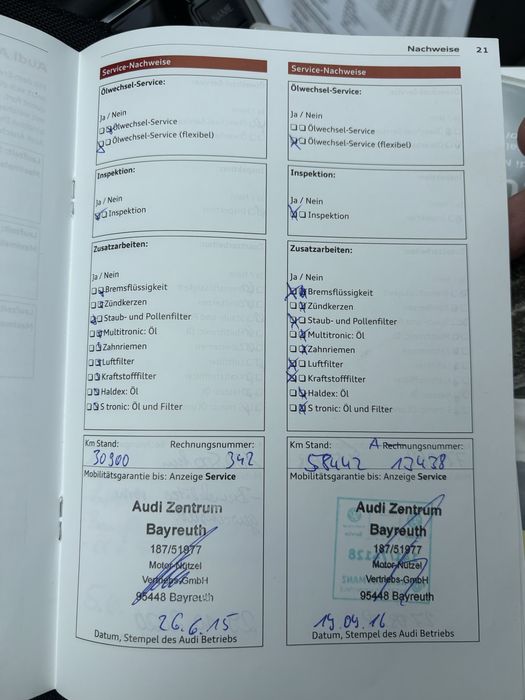 Nachweise 21
Service-Nachweise
Ölwechsel-Service:
Ja / Nein
Ölwechsel-Service
Ölwechsel-Service (flexibel)
Inspektion:
Ja / Nein
Inspektion
Zusatzarbeiten:
Ja / Nein
Bremsflüssigkeit
Zündkerzen
Staub- und Pollenfilter
Multitronic: Öl
Zahnriemen
Luftfilter
Kraftstofffilter
Haldex: Öl
S tronic: Öl und Filter
Km Stand: Rechnungsnummer:
30900 342
Mobilitätsgarantie bis: Anzeige Service
Audi Zentrum
Bayreuth
187/51977
Motor-Nützel
Vertriebs-GmbH
95448 Bayreuth
26.6.15
Datum, Stempel des Audi Betriebs
Service-Nachweise
Ölwechsel-Service:
Ja / Nein
Ölwechsel-Service
Ölwechsel-Service (flexibel)
Inspektion:
Ja / Nein
Inspektion
Zusatzarbeiten:
Ja / Nein
Bremsflüssigkeit
Zündkerzen
Staub- und Pollenfilter
Multitronic: Öl
Zahnriemen
Luftfilter
Kraftstofffilter
Haldex: Öl
S tronic: Öl und Filter
Km Stand: A Rechnungsnummer:
58442 13438
Mobilitätsgarantie bis: Anzeige Service
Audi Zentrum
Bayreuth
187/51977
Motor-Nützel
Vertriebs-GmbH
95448 Bayreuth
19.09.16
Datum, Stempel des Audi Betriebs